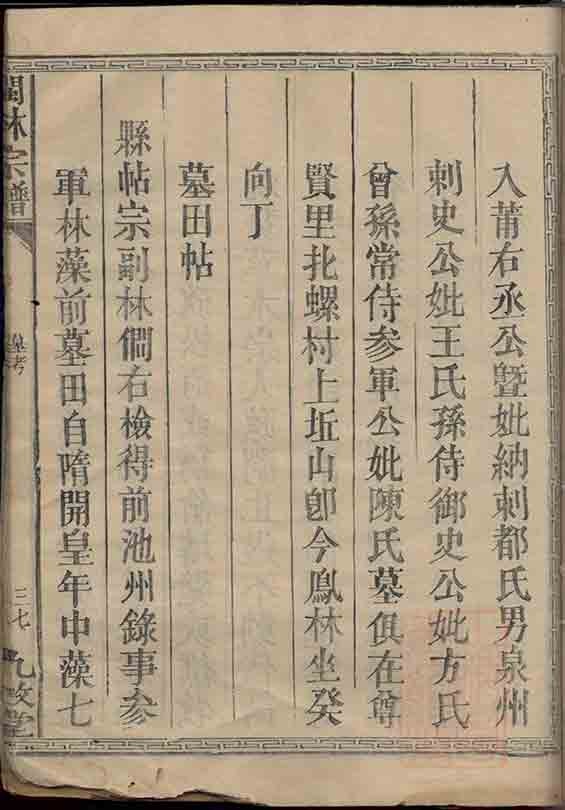 入莆右丞公暨妣納刺都氏男泉州
刺史公妣王氏孫侍御史公妣方氏
曾孫常侍參軍公妣陳氏墓俱在尊
賢里北螺村上坵山卽今鳳林坐癸
向丁
墓田帖
縣帖宗副林僩右檢得前池州錄事參
軍林藻前墓田自隋開皇年中藻七
林宗譜
墓考
三七
九牧堂